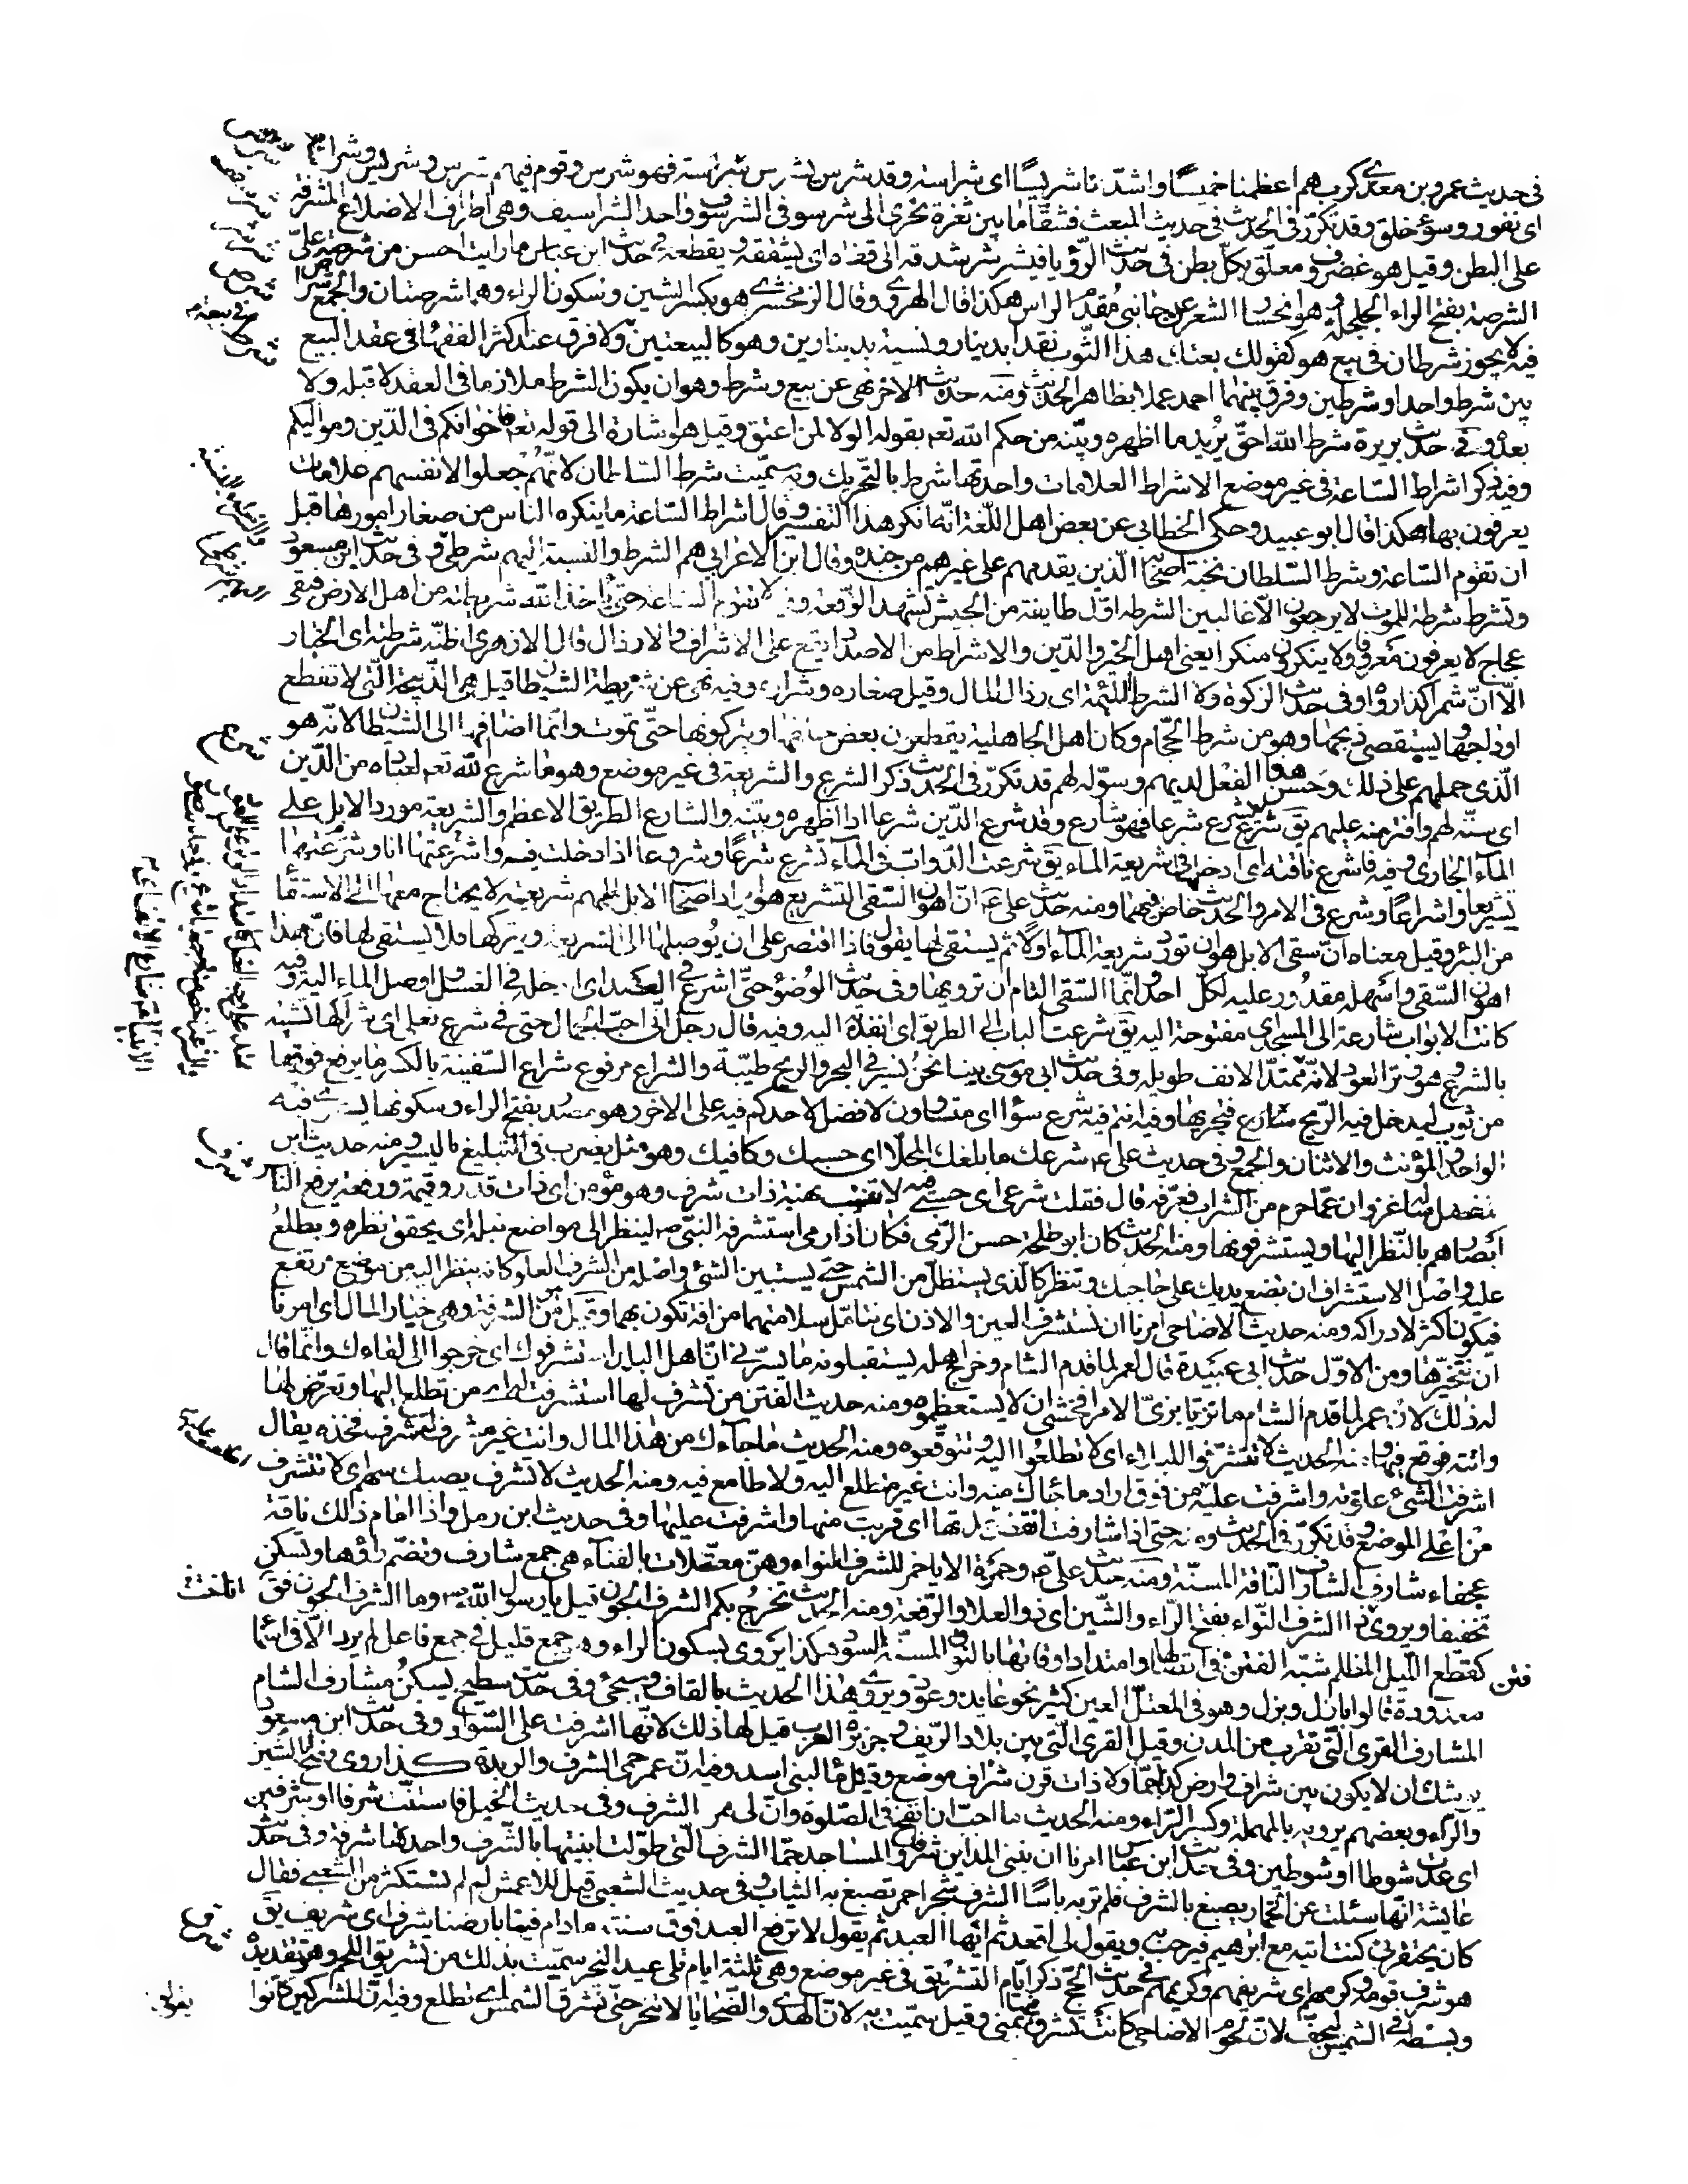 فى حديث عمرو بن معدى كرب هم اعظمنا خميسًا واشدّنا شريسًا اى شراسة وقد شرس يشرس شراسة فهو شرس وقوم فيهم شرس وشريس وشراسة
اى نفور وسوء خلق وقد تكرّر فى الحديث فى حديث المبعث فشقّا ما بين ثغرة نحرى الى شرسوفى الشرسوف واحد الشراسيف وهى اطراف الاضلاع المشرفة
على البطن وقيل هو غضروف معلّق بكلّ بطن فى حديث الرّؤيا فيشرشر شدقه الى قفاه اى يشقّقه ويقطعه فى حديث ابن عباس ما رايت احسن من شرصة علىّ
الشرصة بفتح الراء الجلحة وهو انحسار الشعر عن جانبى مقدم الراس هكذا قال الهروى وقال الزمخشرى هو بكسر الشين وسكون الراء وهما شرصتان والجمع شراص
فيه لا يجوز شرطان فى بيع هو كقولك بعتك هذا الثوب نقدا بدينار ونسية بدينارين وهو كالبيعتين ولا فرق عند اكثر الفقهاء فى عقد البيع
بين شرط واحد او شرطين وفرق بينهما احمد عملا بظاهر الحديث ومنه حديث الاخر نهى عن بيع وشرط وهو ان يكون الشرط ملازما فى العقد لا قبله ولا
بعده وفى حديث بريرة شرط الله احقّ يريد ما اظهره وبيّنه من حكم الله تعم بقوله الولا لمن اعتق وقيل هو اشارة الى قوله تعم فاخوانكم فى الدّين ومواليكم
وفيه ذكر اشراط السّاعة فى غير موضع الاشراط العلامات واحدتها شرط بالتّحريك وبه سمّيت شرط السّلطان لانّهم جعلوا لانفسهم علامات
يعرفون بها هكذا قال ابو عبيد وحكى الخطابى عن بعض اهل اللّغة انّه انكر هذا التفسير وقال اشراط السّاعة ما ينكره الناس من صغار امورها قبل
ان تقوم السّاعة وشرط السّلطان نخبة اصحابه الّذين يقدمهم على غيرهم من جنده وقال ابن الاعرابى هم الشرط والنسبة اليهم شرطىّ وفى حديث ابن مسعود
وتشرط شرطة للموت لا يرجعون الّا غالبين الشرطه اوّل طايفة من الجيش تشهد الوقعة وفيه لا تقوم الساعة حتّى ياخذ الله شريطته من اهل الارض فيبقى
عجاج لا يعرفون معروفا ولا ينكرون منكرا يعنى اهل الخير والدّين والاشراط من الاضداد يقع على الاشراف والارذال قال الازهرى اظنّه شرطته اى الخيار
الّا انّ شمرا كذا رواه وفى حديث الزكوة ولا الشرط اللئيمة اى رذال المال وقيل صغاره وشراره وفيه نهى عن شريطة الشيطان قيل هى الذّبيحة الّتى لا تقطع
اوداجها ويستقصى ذبحها وهو من شرط الحجّام وكان اهل الجاهلية يقطعون بعض حلقها ويتركونها حتّى تموت وانّما اضافها الى الشيطان لانّه هو
الّذى حملهم على ذلك وحسن هذا الفعل لديهم وسوّله لهم قد تكرّر فى الحديث ذكر الشرع والشريعة فى غير موضع وهو ما شرع لله تعم لعباده من الدّين
اى سنّه لهم وافترضه عليهم يق شرع يشرع شرعا فهو شارع وقد شرع الدّين شرعا اذا اظهره وبيّنه والشارع الطريق الاعظم والشريعة مورد الابل على
المآء الجارى وفيه فاشرع ناقته اى ادخلها فى شريعة الماء يق شرعت الدّوابّ فى المآء تشرع شرعًا وشروعا اذا دخلت فيه واشرعتها انا وشرّعتها
تشريعا واشراعًا وشرع فى الامر والحديث خاض فيهما ومنه حديث على عم انّ اهون السّقى التّشريع هو ايراد اصحاب الابل ابلهم شريعة لا يحتاج معها الى الاستقاء
من البئر وقيل معناه انّ سقى الابل هو ان تورد شريعة المآء اولًا ثم يستقى لها يقول فاذا اقتصر على ان يوصلها الى الشريعة ويتركها فلا يستقى لها فانّ هذا
اهون السّقى واسهله مقدور عليه لكلّ احد وانّما السّقى التام ان ترويها وفى حديث الوضوء حتّى اشرع فى العضد اى ادخله فى الغسل واوصل الماء اليه وفيه
كانت الابواب شارعة الى المسجد اى مفتوحة اليه يق شرعت الباب الى الطريق اى انفذته اليه وفيه قال رجل انّى احبّ الجمال حتى فى شرع نعلى اى شراكها تشبيه
بالشرع وهو وتر العود لانّه ممتدّ الانف طويله وفى حديث ابى موسى بينا نحن نسير فى البحر والريح طيّبة والشراع مرفوع شراع السّفينة بالكسر ما يرفع فوقها
من ثوب ليدخل فيه الرّيح فتجريها وفيه انتم فيه شرع سواء اى متساوون لا فضل لاحدكم فيه على الاخر وهو مصدر بفتح الراء وسكونها يستوى فيه
الواحد والمؤنث والاثنان والجمع وفى حديث على عم شرعك ما بلغك المحلّا اى حسبك وكافيك وهو مثل يضرب فى التبليغ باليسير ومنه حديث ابن
مغفل ساله غزوان عمّا حرم من الشراب فعرّفه قال فقلت شرعى اى حسبى فيه لا ينتهب نهبة ذات شرف وهو مؤمن اى ذات قدر وقيمة ورفعة يرفع الناس
ابصارهم بالنّظر اليها ويستشرفونها ومنه الحديث كان ابو طلحة حسن الرّمى فكان اذا رمى استشرفه النبّى ص لينظر الى مواضع نبله اى يحقق نظره ويطلع
عليه واصل الاستشراف ان تضع يديك على حاجبك وتنظر كالّذى يستظلّ من الشمس حتّى يستبين الشئ واصله من الشرف العلو كانه ينظر اليه من موضع مرتفع
فيكون اكثر لادراكه ومنه حديث الاضاحى امرنا ان نستشرف العين والاذن اى نتامّل سلامتهما من افة تكون بهما وقيل من الشرفة وهى خيار المال اى امرنا
ان نتخيّرها ومن الاوّل حديث ابى عبيدة قال لعمر لما قدم الشام وخرج اهله يستقبلونه ما يسرّنى انّ اهل البلد استشرفوك اى خرجوا الى لقاءك وانّما قال
له ذلك لانّ عمر لما قدم الشام ما تزيّا بزىّ الامراء فخشى ان لا يستعظموه ومنه حديث الفتن من تشرف لها استشرفت له اى من تطلع اليها وتعرّض لها
واتته فوقع فيها ومنه الحديث لا تتشرّفوا للبلاء اى لا تطلعوا اليه وتتوقّعوه ومنه الحديث ما جآءك من هذا المال وانت غير مشرف له فخذه يقال
اشرفت الشئ علوته واشرفت عليه من فوق اراد ما جاءك منه وانت غير متطلع اليه ولا طامع فيه ومنه الحديث لا تشرف يصبك سهم اى لا تتشرف
من اعلى الموضع وقد تكرّر فى الحديث ومنه حتى اذا شارفت انقضت عدتها اى قربت منها واشرفت عليها وفى حديث ابن زمل واذا امام ذلك ناقة
عجفاء شارف الشارف النّاقة المسنّة ومنه حديث علىّ عم وحمزة الا يا حمز للشرف النواء وهنّ معقّلات بالفناء هى جمع شارف وتضمّ راؤها وتسكن
تخفيفا ويروى ذا الشرف النّواء بفتح الرّاء والشّين اى ذو العلاء والرّفعة ومنه الحديث تخرج بكم الشرف الجون قيل يا رسول الله وما الشرف الجون فق
فتن كقطع اللّيل المظلم شبّه الفتن فى اتصالها وامتداد اوقاتها بالنوق المسنّة السود هكذا يروى بسكون الراء وهو جمع قليل فى جمع فاعل لم يرد الّا فى اسماء
معدودة قالوا بازل وبزل وهو فى المعتلّ العين كثير نحو عايد وعود ويروى هذا الحديث بالقاف وسيجئ وفى حديث سطيح يسكن مشارف الشام
المشارف القرى الّتى تقرب من المدن وقيل القرى الّتى بين بلاد الرّيف وجزيرة العرب قيل لها ذلك لانّها اشرفت على السّواد وفى حديث ابن مسعود
يوشك ان لا يكون بين شراف وارض كذا جمّاء ولا ذات قرن شراف موضع وقيل ماء لبنى اسد وفيه انّ عمر حمى الشرف والربذة كذا روى بفتح الشين
والرّاء وبعضهم يرويه بالمهملة وكسر الرّاء ومنه الحديث ما احبّ ان انفخ فى الصّلوة وانّ لى ممر الشرف وفى حديث الخيل فاستنّت شرفا او شرفين
اى عدت شوطا او شوطين وفى حديث ابن عبّاس امرنا ان نبنى المداين شرفا والمساجد جمّا الشرف الّتى طوّلت ابنيتها بالشّرف واحدتها شرفة وفى حديث
عايشة انّها سئلت عن الخمار يصبغ بالشرف فلم تر به باسًا الشرف شجر احمر تصبغ به الثياب وفى حديث الشعبى قيل للاعمش لم لم تستكثر من الشعبى فقال
كان يحتقرنى كنت اتيه مع ابرهيم فيرحب به ويقول لى اقعد ثم ايّها العبد ثم يقول لا نرفع العبد فوق سنته ما دام فينا بارضنا شرف اى شريف يق
هو شرف قومه وكرمهم اى شريفهم وكريمهم فى حديث الحجّ ذكر ايّام التشريق فى غير موضع وهى ثلثة ايام تلى عيد النّحر سمّيت بذلك من تشريق اللحم وهو تقديده
وبسطه فى الشمس ليجفّ لانّ لحوم الاضاحى كانت تشرق فيها بمنى وقيل سمّيت به لانّ الهدى والضّحايا لا تنحر حتّى تشرق الشمس اى تطلع وفيه انّ المشركين كانوا
شرسف
شرشر
شرص
شرط
شرع
شرف
شرق
يقولون